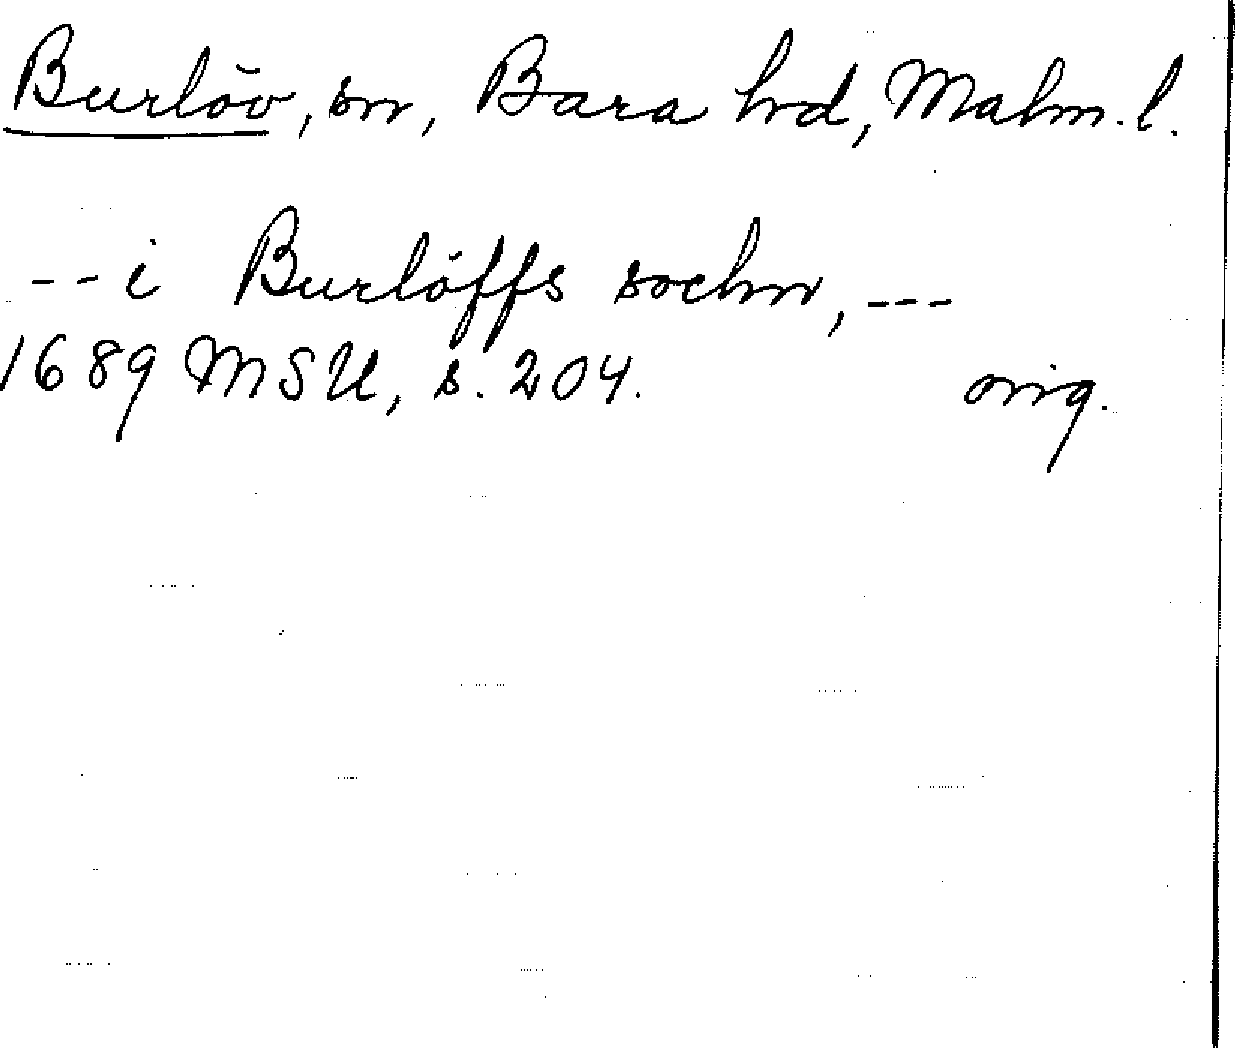 Burlöv, sn, Bara hd, Malm. l.
-- i Burlöffs sochn, ---
1689 MSU, s. 204. orig.